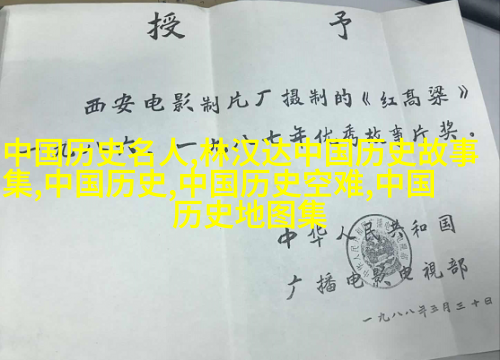 授 予
西安电影制片厂摄制的《红高粱》
一九八六、一九八七年优秀故事片奖。
中国历史名人,林汉达中国历史故事
集,中国历史,中国历史空难,中国
历史地图集
中华人民共和国
广播电影电视部
一九八八年三月三十日